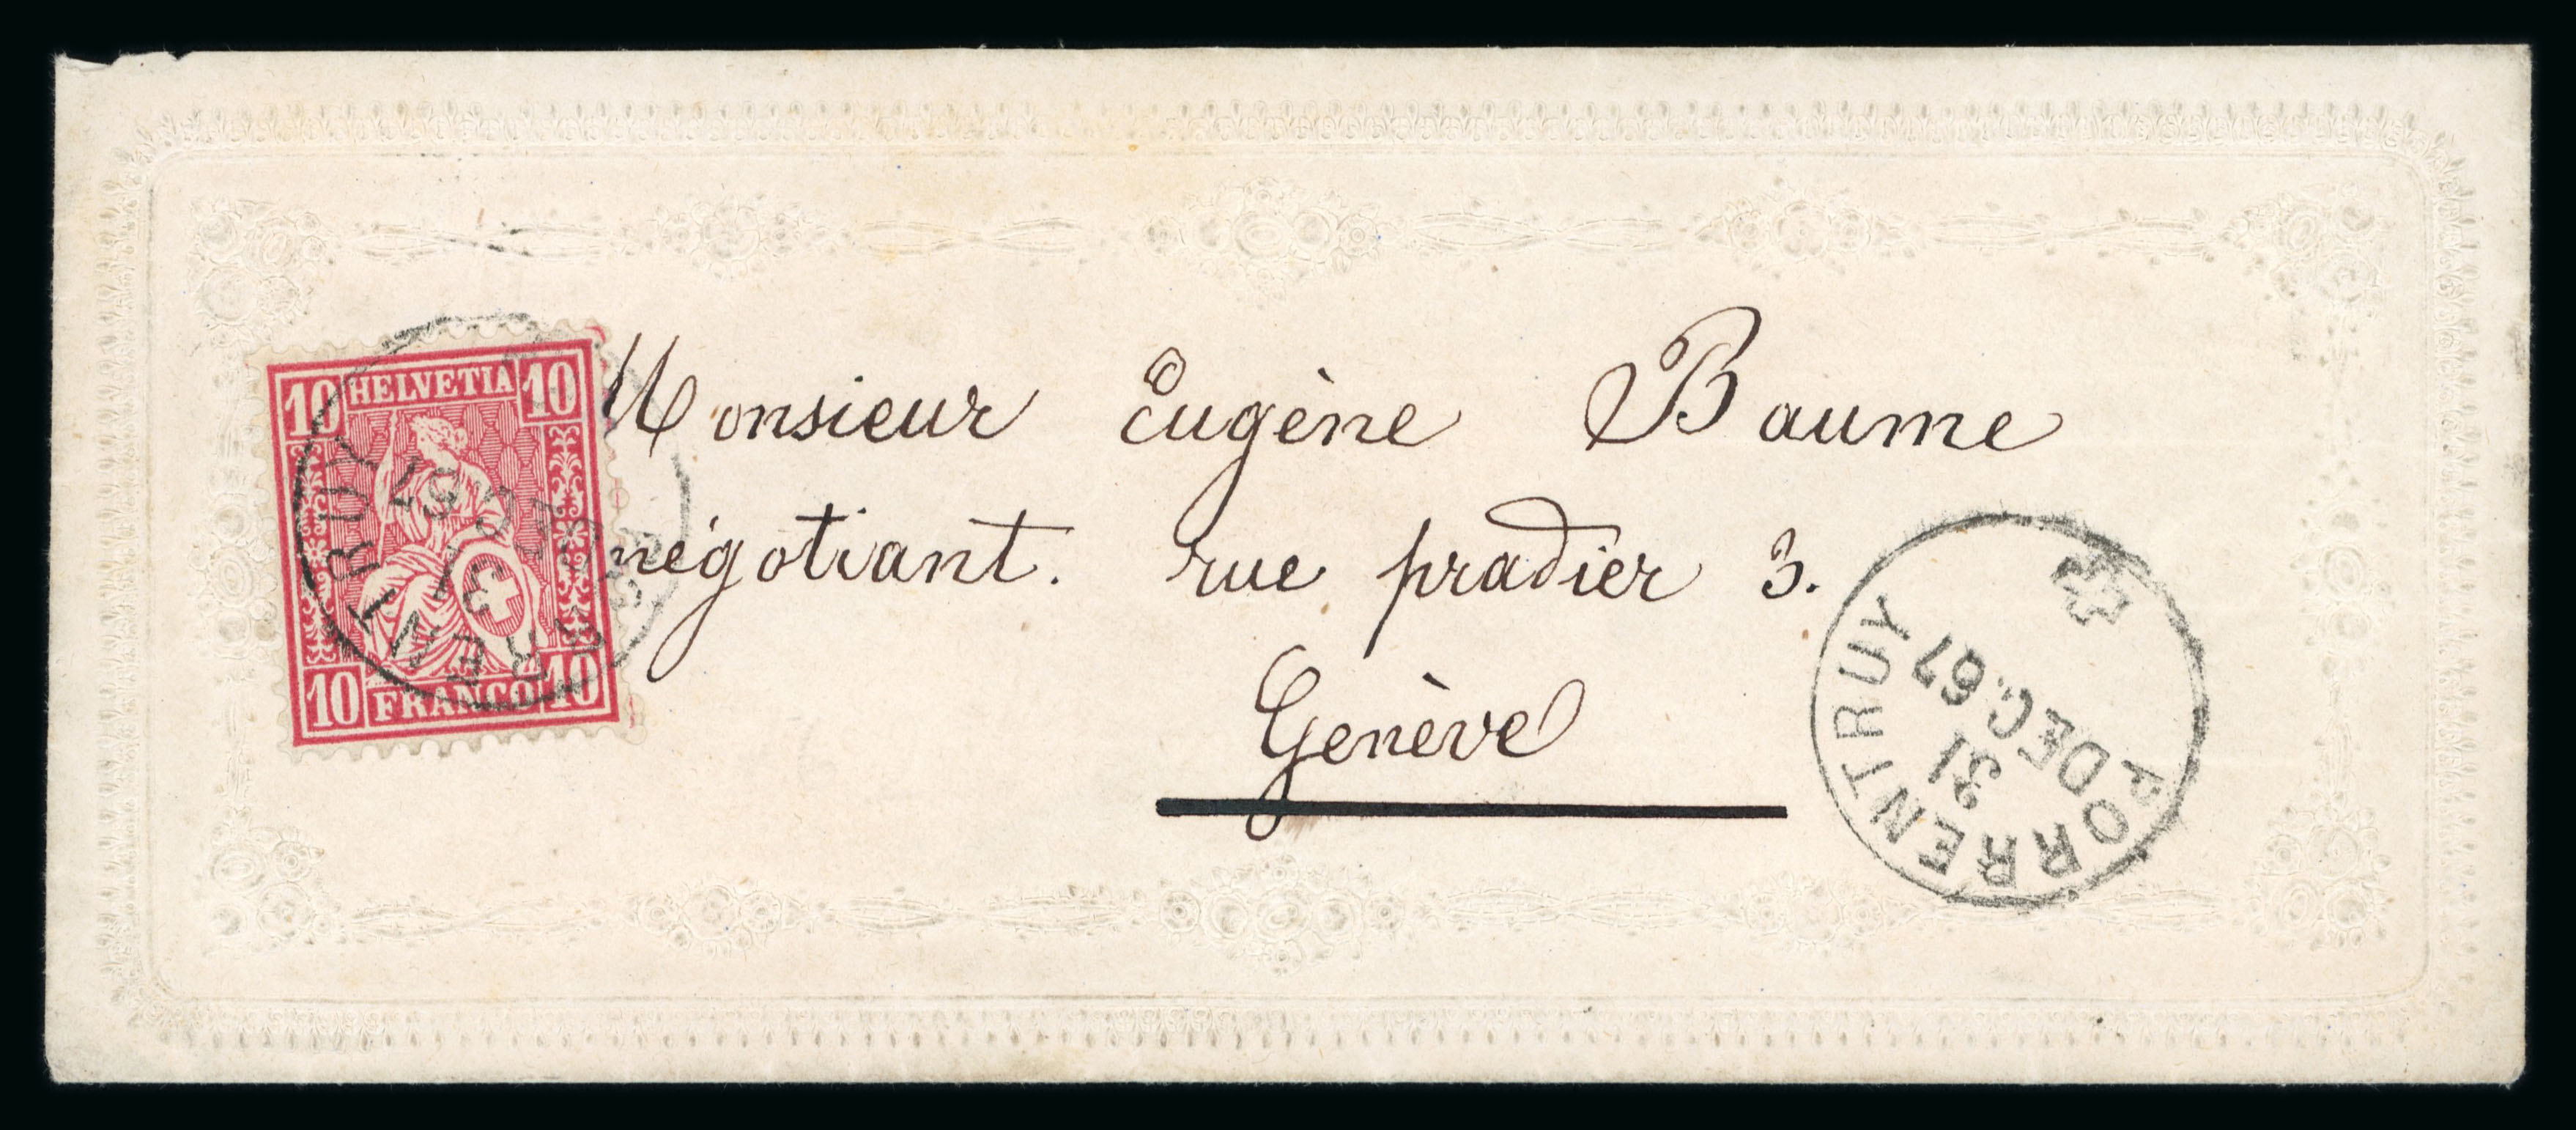 10 HELVETIA 10
10 FRANCO 10
PORRENTRUY
31
DEC. 67
Monsieur Eugène Baume
négotiant. rue pradier 3.
Genève
PORRENTRUY
31
DEC. 67